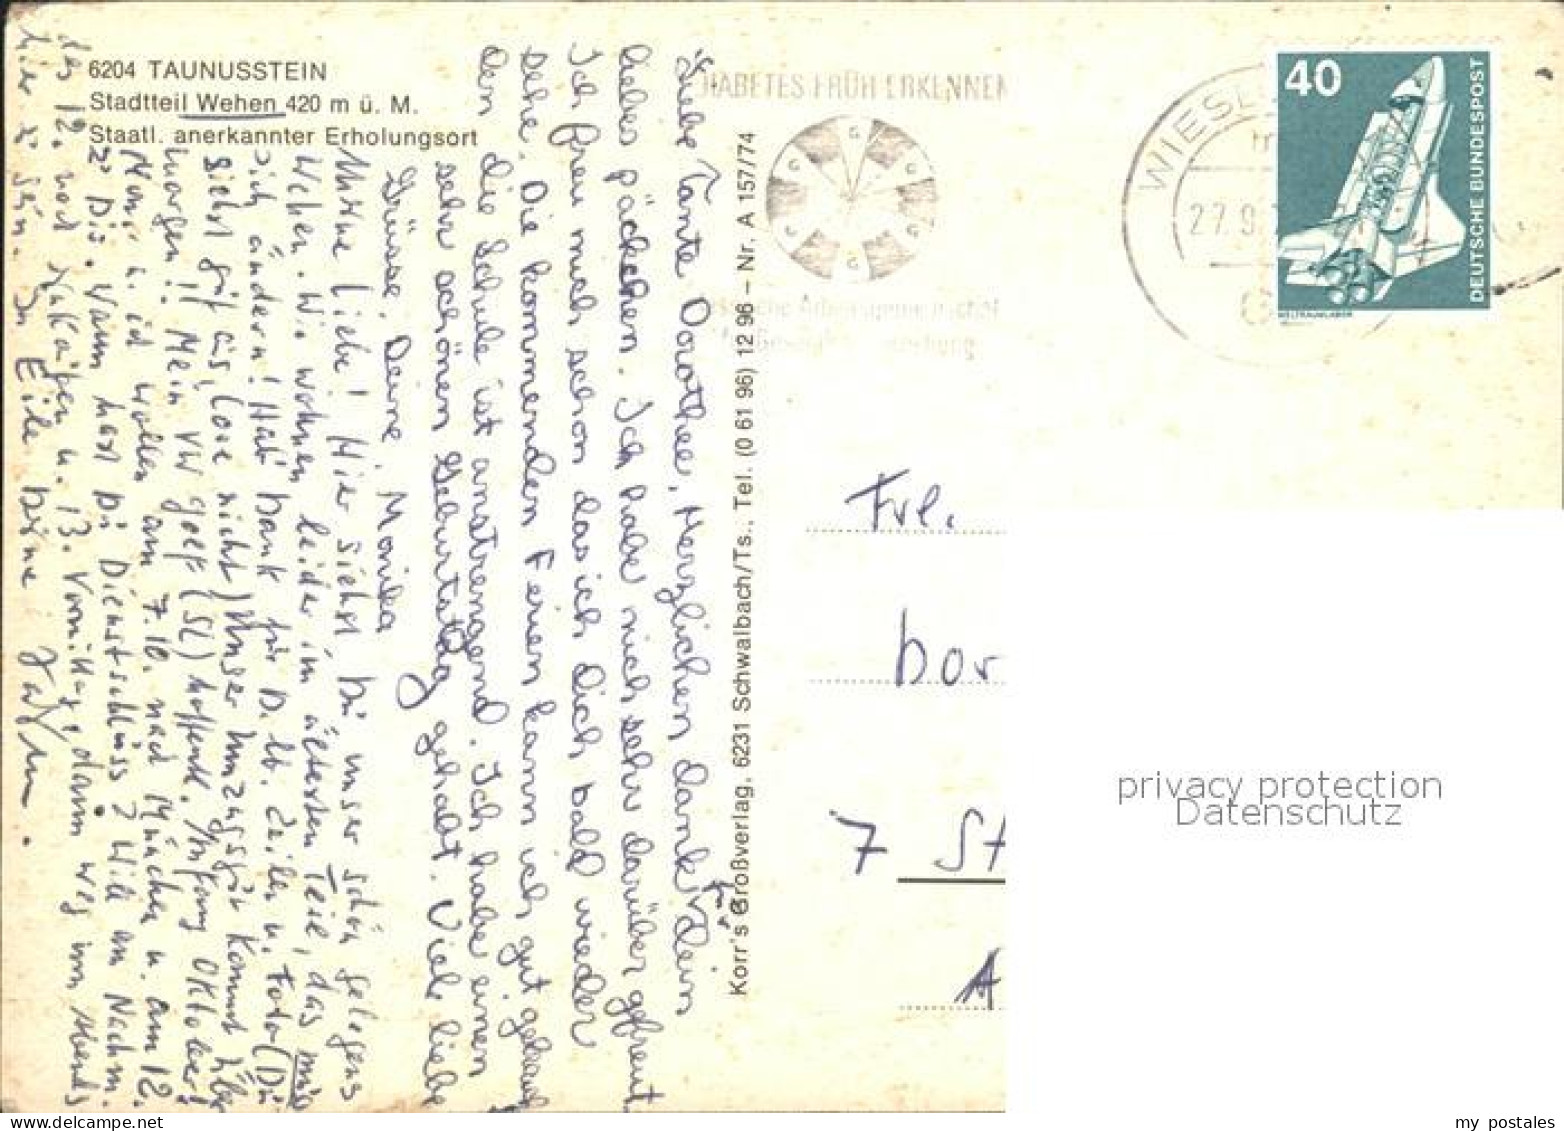 6204 TAUNUSSTEIN
Stadtteil Wehen 420 m ü. M.
Staatl. anerkannter Erholungsort
DIABETES FRÜH ERKENNEN
WIESB
27.9.
40
DEUTSCHE BUNDESPOST
WELTRAUMLABOR
Korr's Großverlag, 6231 Schwalbach/Ts., Tel. (0 61 96) 12 96 – Nr. A 157/74
Liebe Tante Dorothee, Herzlichen dank für dein
liebes päckchen. Ich habe mich sehr darüber gefreut
Ich freu mich schon das ich dich bald wieder
sehe. Die kommenden Ferien kann ich gut gebrau
den die Schule ist anstrengend. Ich habe einen
sehr schönen Geburtstag gehabt. Viele liebe
Grüsse, Deine Monika
Meine Liebe! Hier siehst Du unser schön gelegenes
Wehen. Wir wohnen leider im ältesten Teil, das muß
sich ändern! Hab Dank für D. lb. Zeilen u. Fotos (Du
siehst gut aus, Lore nicht) Unser Umzugsgut kommt
morgen!! Mein VW goelf (SL) hoffentl. Anfang Oktober!
Moni u. ich wollen am 7.10. nach München u. am 12.
zu Dir. Wann hast Du Dienstschluss? Will am Nachm.
des 12. noch u. 13. Vormittag, dann weg um abends
hier zu sein. In Eile Deine
Frl.
Dor
7 St
A
privacy protection
Datenschutz
my postales